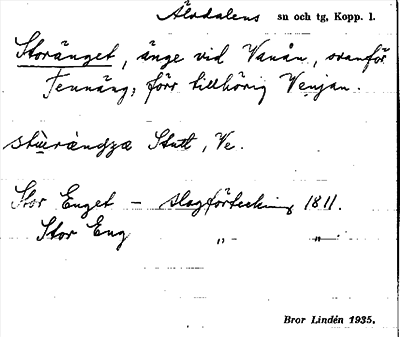 Älvdalens sn och tg, Kopp. l.
Storänget, änge vid Vanån, ovanför
Tennäng, förr tillhörig Venjan.
Stutt, Ve.
Stor Enget – slagförteckning 1811.
Stor Eng „ „
Bror Lindén 1935.